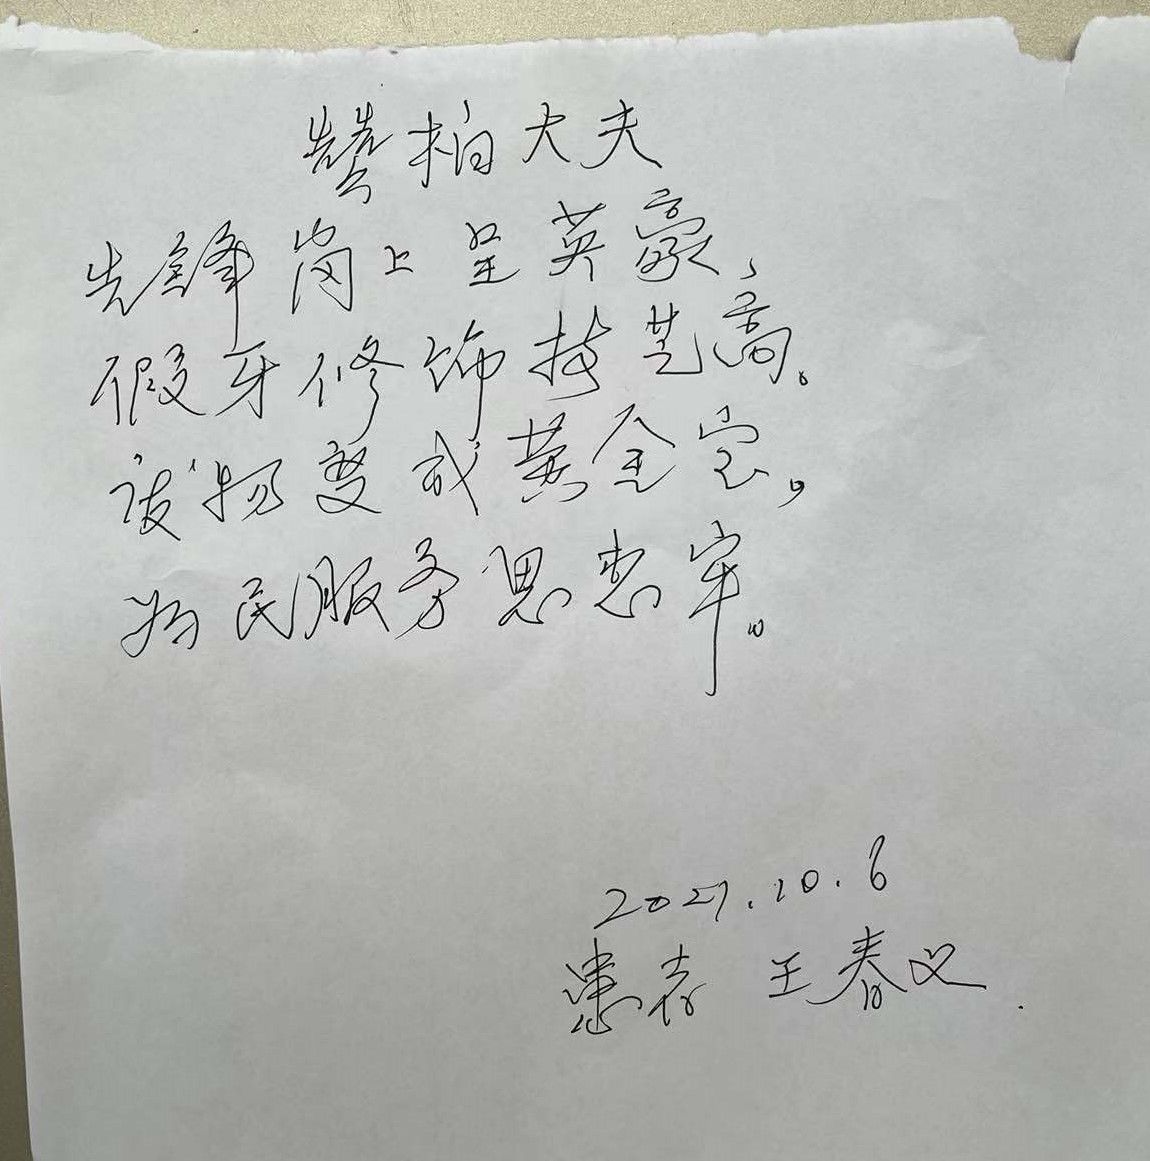 赞柏大夫
先锋岗上呈英豪、
假牙修饰技艺高。
废物变成黄金宝，
为民服务思想牢。
2021.10.6
患者 王春义